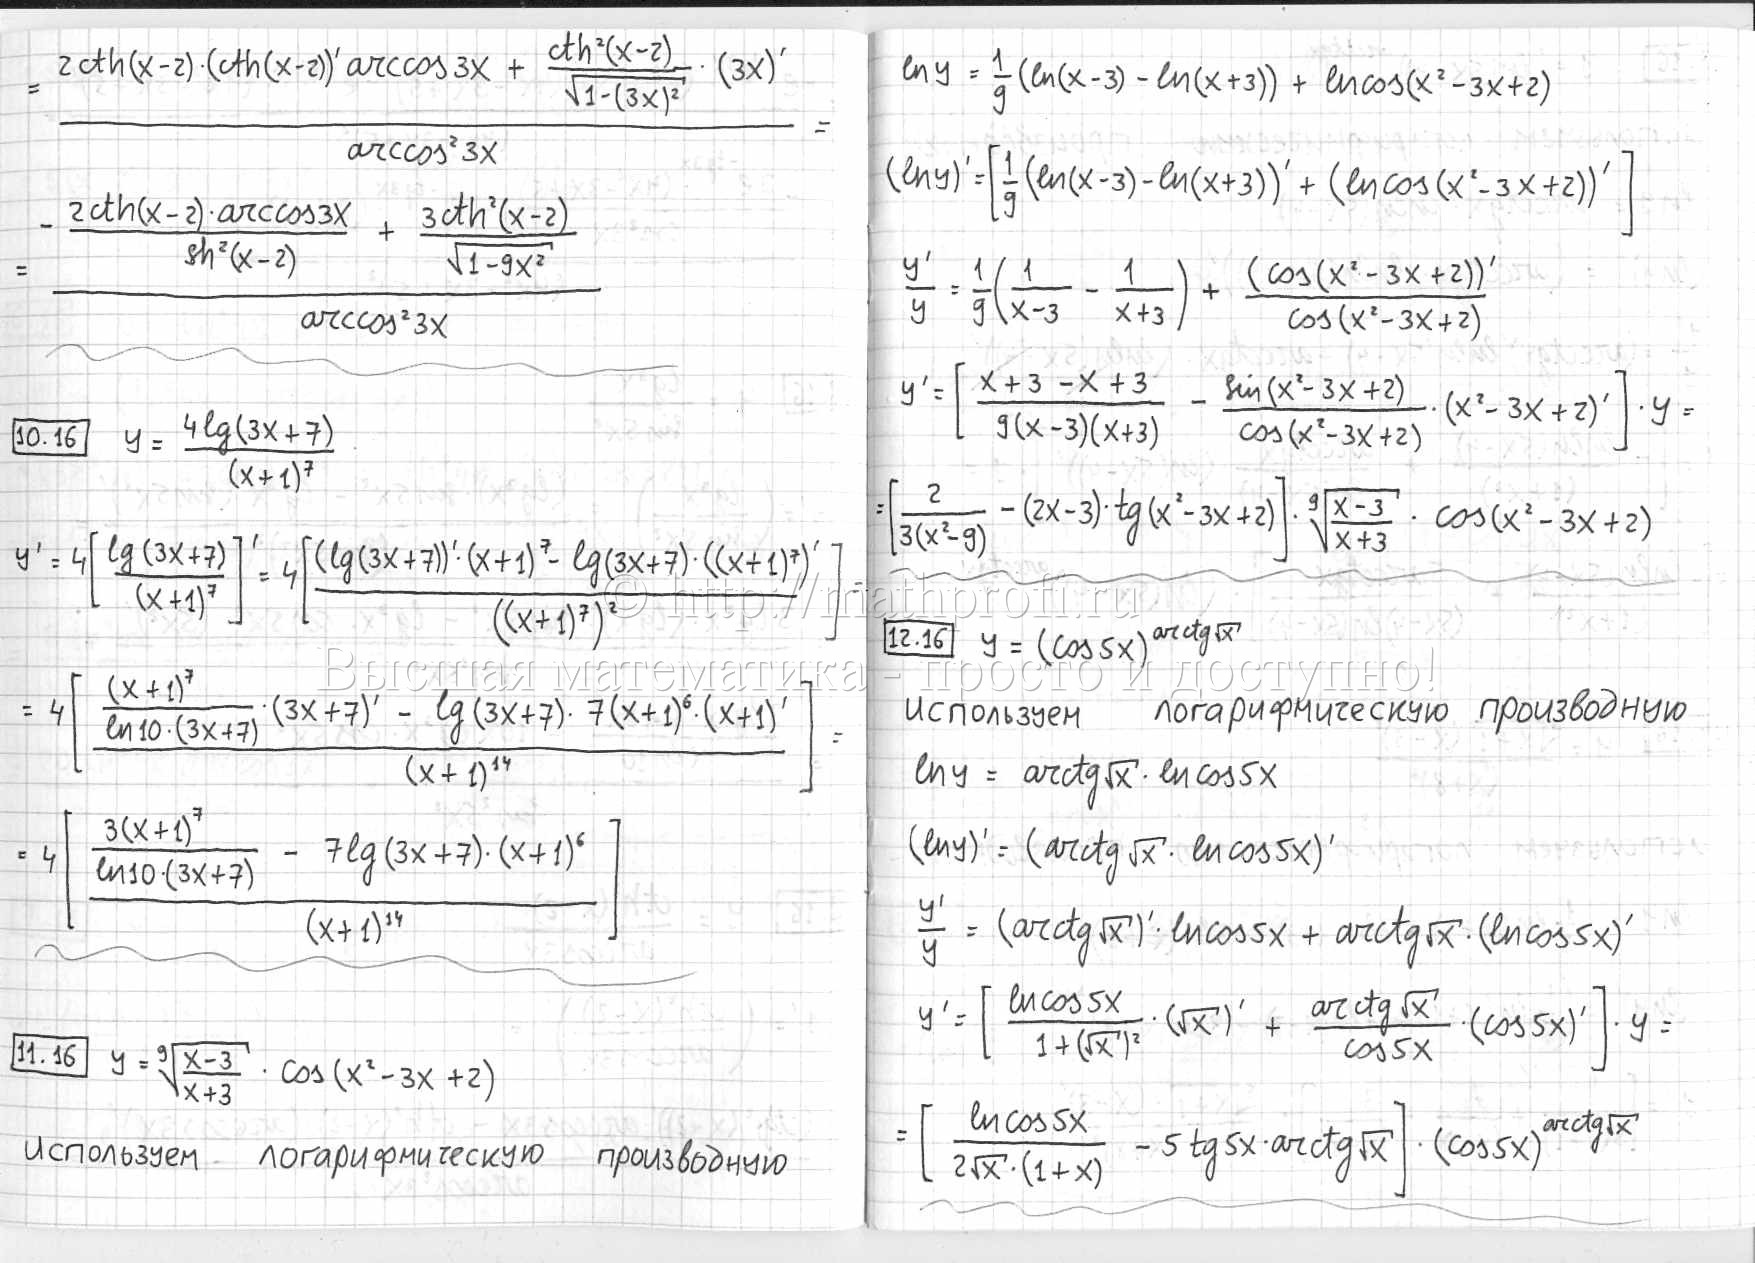 = (2cth(x-2)·(cth(x-2))' arccos3x + cth²(x-2)/√(1-(3x)²) · (3x)') / arccos²3x =
= (- 2cth(x-2)·arccos3x / sh²(x-2) + 3cth²(x-2)/√(1-9x²)) / arccos²3x
10.16 y = 4lg(3x+7) / (x+1)⁷
y' = 4[lg(3x+7) / (x+1)⁷]' = 4[((lg(3x+7))'·(x+1)⁷ - lg(3x+7)·((x+1)⁷)') / ((x+1)⁷)²]
= 4[((x+1)⁷ / (ln10·(3x+7)) · (3x+7)' - lg(3x+7)·7(x+1)⁶·(x+1)') / (x+1)¹⁴] =
= 4[(3(x+1)⁷ / (ln10·(3x+7)) - 7lg(3x+7)·(x+1)⁶) / (x+1)¹⁴]
11.16 y = ⁹√((x-3)/(x+3)) · cos(x²-3x+2)
Используем логарифмическую производную
ln y = 1/9 (ln(x-3) - ln(x+3)) + ln cos(x²-3x+2)
(ln y)' = [1/9 (ln(x-3) - ln(x+3))' + (ln cos(x²-3x+2))']
y'/y = 1/9 (1/(x-3) - 1/(x+3)) + (cos(x²-3x+2))' / cos(x²-3x+2)
y' = [(x+3-x+3) / (9(x-3)(x+3)) - sin(x²-3x+2)/cos(x²-3x+2) · (x²-3x+2)'] · y =
= [2/(3(x²-9)) - (2x-3)·tg(x²-3x+2)] · ⁹√((x-3)/(x+3)) · cos(x²-3x+2)
© http://mathprofi.ru
Высшая математика - просто и доступно!
12.16 y = (cos5x)^(arctg√x)
Используем логарифмическую производную
ln y = arctg√x · ln cos5x
(ln y)' = (arctg√x · ln cos5x)'
y'/y = (arctg√x)' · ln cos5x + arctg√x · (ln cos5x)'
y' = [ln cos5x / (1+(√x)²) · (√x)' + arctg√x / cos5x · (cos5x)'] · y =
= [ln cos5x / (2√x·(1+x)) - 5 tg5x · arctg√x] · (cos5x)^(arctg√x)